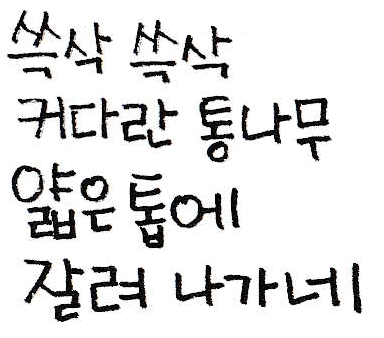 쓱삭 쓱삭
커다란 통나무
얇은 톱에
잘려 나가네